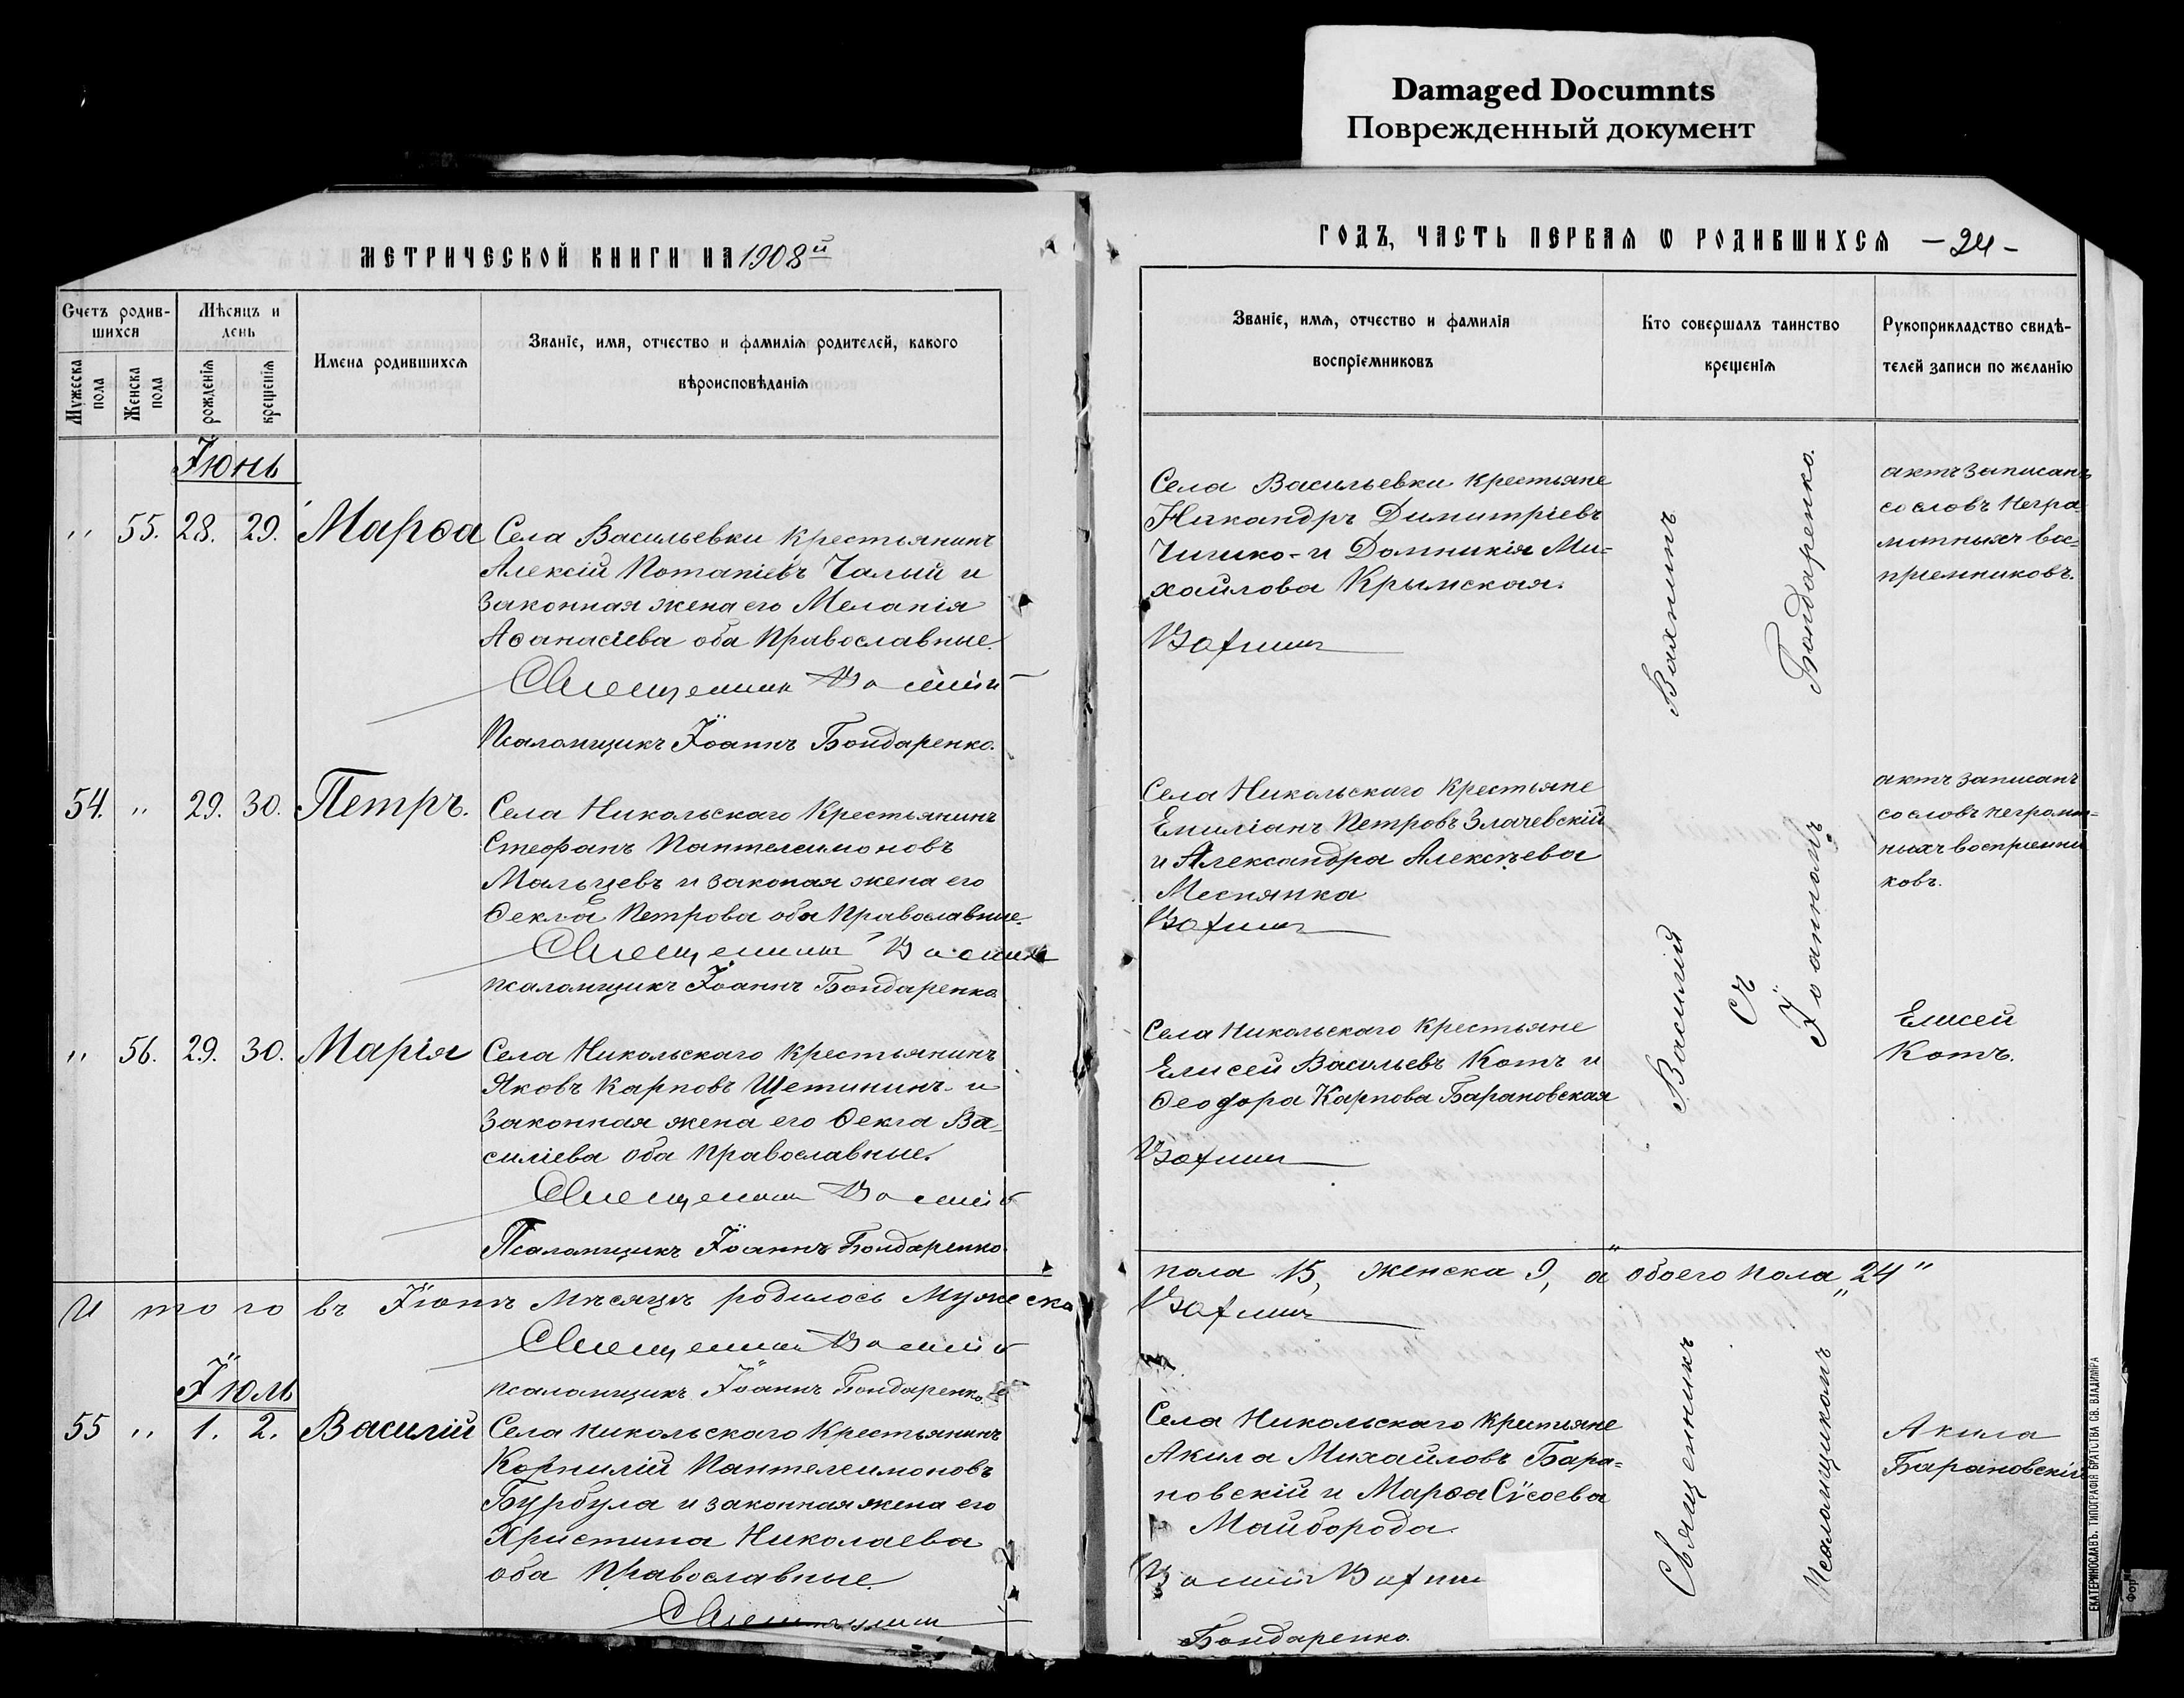 Damaged Documnts
Поврежденный документ
МЕТРИЧЕСКОЙ КНИГИ НА 1908й
Счетъ родив-
шихся
Мѣсяцъ и
день
Мужеска
пола
Женска
пола
рожденія
крещенія
Имена родившихся
Званіе, имя, отчество и фамилія родителей, какого
вѣроисповѣданія
Іюнь
" 55. 28. 29. Марѳа
Села Васильевки Крестьянинъ
Алексій Потапіевъ Чалый и
законная жена его Меланія
Аѳанасіева оба Православные.
Священникъ Василій
Псаломщикъ Іоаннъ Бондаренко.
54. " 29. 30. Петръ.
Села Никольскаго Крестьянинъ
Стефанъ Пантелеимоновъ
Мальцевъ и законая жена его
Ѳекла Петрова оба Православные.
Священникъ Василій
псаломщикъ Іоаннъ Бондаренко
" 56. 29. 30. Марія
Села Никольскаго Крестьянинъ
Яковъ Карповъ Щетининъ и
законная жена его Ѳекла Ва-
силіева оба православные.
Священникъ Василій
Псаломщикъ Іоаннъ Бондаренко.
Итого въ Іюнѣ мѣсяцѣ родилось Мужеска
Священникъ Василій
псаломщикъ Іоаннъ Бондаренко.
Іюль
55 " 1. 2. Василій
Села Никольскаго Крестьянинъ
Корнилій Пантелеимоновъ
Бурбула и законная жена его
Христина Николаева
оба Православные
Священникъ
ГОДЪ, ЧАСТЬ ПЕРВАЯ Ѡ РОДИВШИХСЯ - 24 -
Званіе, имя, отчество и фамилія
воспріемниковъ
Кто совершалъ таинство
крещенія
Рукоприкладство свидѣ-
телей записи по желанію
Села Васильевки крестьяне
Никандръ Димитріевъ
Чишко - и Домникія Ми=
хайлова Крымская.
Вахнинъ
актъ записанъ
со словъ негра-
мотныхъ вос=
пріемниковъ.
Села Никольскаго Крестьяне
Емиліанъ Петровъ Злачевскій
и Александра Алексѣева
Меснянка
Вахнинъ
актъ записанъ
со словъ неграмот=
ныхъ воспріемни
ковъ.
Села Никольскаго Крестьяне
Елисей Васильевъ Котъ и
Ѳеодора Карпова Барановская
Вахнинъ
Елисей
Котъ.
пола 15, женска 9, а "обоего пола" 24"
Вахнинъ
Села Никольскаго Крестьяне
Акила Михайловъ Бара=
новскій и Марѳа Сісоева
Майборода.
Василій Вахнинъ
Бондаренко.
Акила
Барановскій
Священникъ Василій Вахнинъ
Съ
Псаломщикомъ Іоанномъ Бондаренко.
ЕКАТЕРИНОСЛАВЪ. ТИПОГРАФІЯ БРАТСТВА СВ. ВЛАДИМІРА